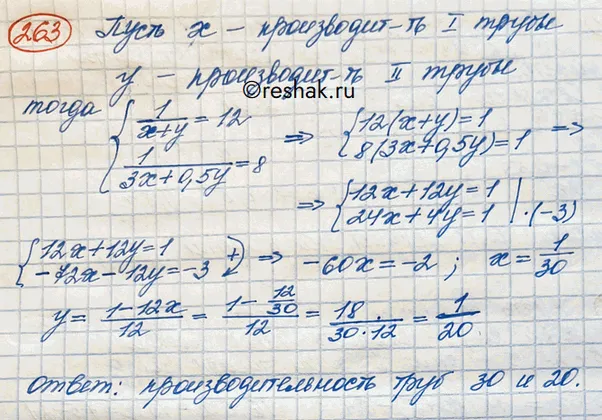 263 Пусть x – производит-ть I трубы
y – производит-ть II трубы
©reshak.ru
тогда { 1/(x+y) = 12 ⇒ { 12(x+y)=1 ⇒
{ 1/(3x+0,5y) = 8 { 8(3x+0,5y)=1
⇒ { 12x+12y=1
{ 24x+4y=1 | ·(-3)
{ 12x+12y=1 (+) ⇒ -60x=-2; x=1/30
{ -72x-12y=-3
y = (1-12x)/12 = (1-12/30)/12 = 18/(30·12) = 1/20.
Ответ: производительность труб 30 и 20.